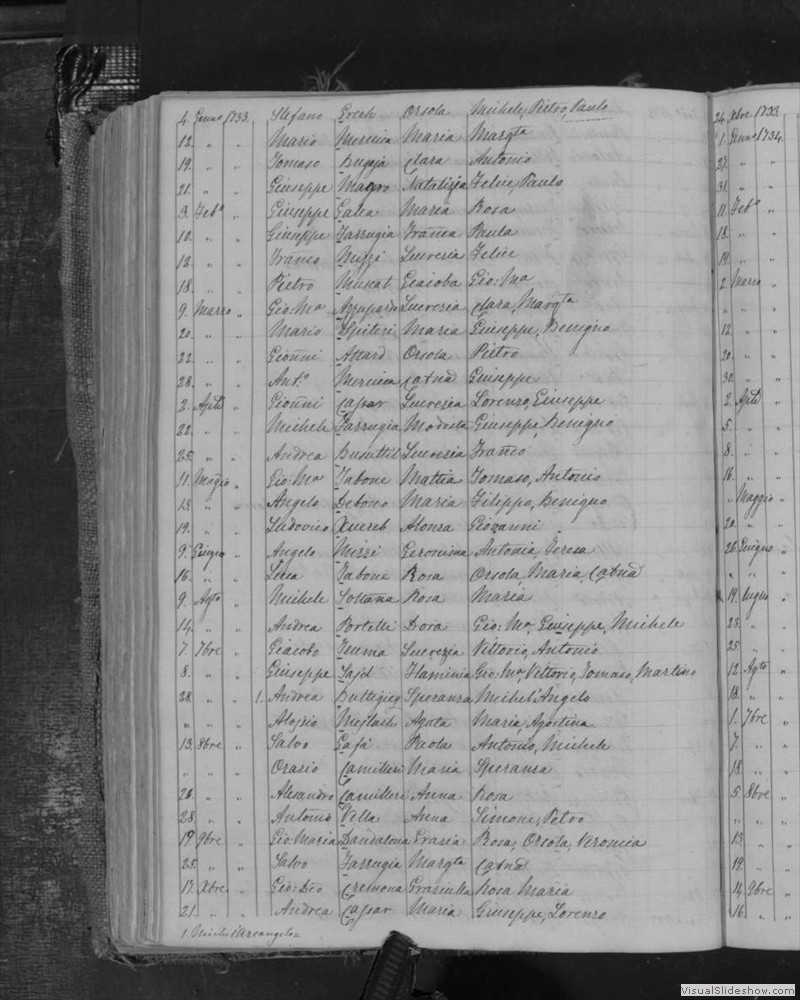 4. Genn° 1733. Stefano Grech Orsola Michele, Pietro, Paulo
12. " " Mario Mercieca Maria Margta
19. " " Tomaso Bugeja Clara Antonio
21. " " Giuseppe Magro Natalizia Felice, Paulo
3. Feb° " Giuseppe Galea Maria Rosa
10. " " Giuseppe Farrugia Franca Paula
12. " " Franco Mizzi Lucrezia Felice
18. " " Pietro Muscat Giacoba Gio: Ma
9. Marzo " Gio: Ma Azzupardo Lucrezia Clara, Margta
20. " " Mario Spiteri Maria Giuseppe, Benigno
22. " " Gionni Attard Orsola Pietro
28. " " Ant.° Mercieca Catna Giuseppe
2. Aple " Gionni Cassar Lucrezia Lorenzo, Giuseppe
22. " " Michele Farrugia Modesta Giuseppe, Benigno
25. " " Andrea Busuttil Lucrezia Franco
11. Maggio " Gio: Ma Tabone Mattia Tomaso, Antonio
13. " " Angelo Debono Maria Filippo, Benigno
19. " " Ludovico Xuereb Alonza Giovanni
9. Giugno " Angelo Mizzi Geronima Antonia, Teresa
16. " " Luca Tabone Rosa Orsola, Maria, Catna
9. Agto " Michele Soltana Rosa Maria
14. " " Andrea Portelli Dora Gio: Ma, Giuseppe, Michele
7. 7bre " Giacobo Lucrezia Vittorio, Antonio
8. " " Giuseppe Sajd Flaminia Gio: Ma, Vittorio, Tomaso, Martino
28. " " 1. Andrea Buttigieg Speranza Michel'Angelo
" " " Alojsio Mejlach Agata Maria, Agostina
13. 8bre " Salvo Gafa Paola Antonio, Michele
" " " Orazio Camilleri Maria Speranza
26. " " Alesandro Camilleri Anna Rosa
28. " " Antonio Vella Anna Simone, Petro
19. 9bre " Gio: Maria Dandalona Grazia Rosa, Orsola, Veronica
25. " " Salvo Farrugia Margta Catna
17. Xbre " Gio: Dio Cremona Graziulla Rosa Maria
21. " " Andrea Cassar Maria Giuseppe, Lorenzo
1. Michel'Arcangelo
24. Xbre 1733
1. Genn° 1734.
27. " "
31. " "
11. Feb° "
18. " "
19. " "
2. Marzo "
9. " "
12. " "
20. " "
30. " "
2. Aple "
5. " "
8. " "
16. " "
" Maggio "
20. " "
26. Giugno "
" " "
19. Luglio "
23. " "
25. " "
12. Agto "
18. " "
1. 7bre "
7. " "
18. " "
5. 8bre "
" " "
13. " "
19. " "
14. 9bre "
16. " "
VisualSlideshow.com